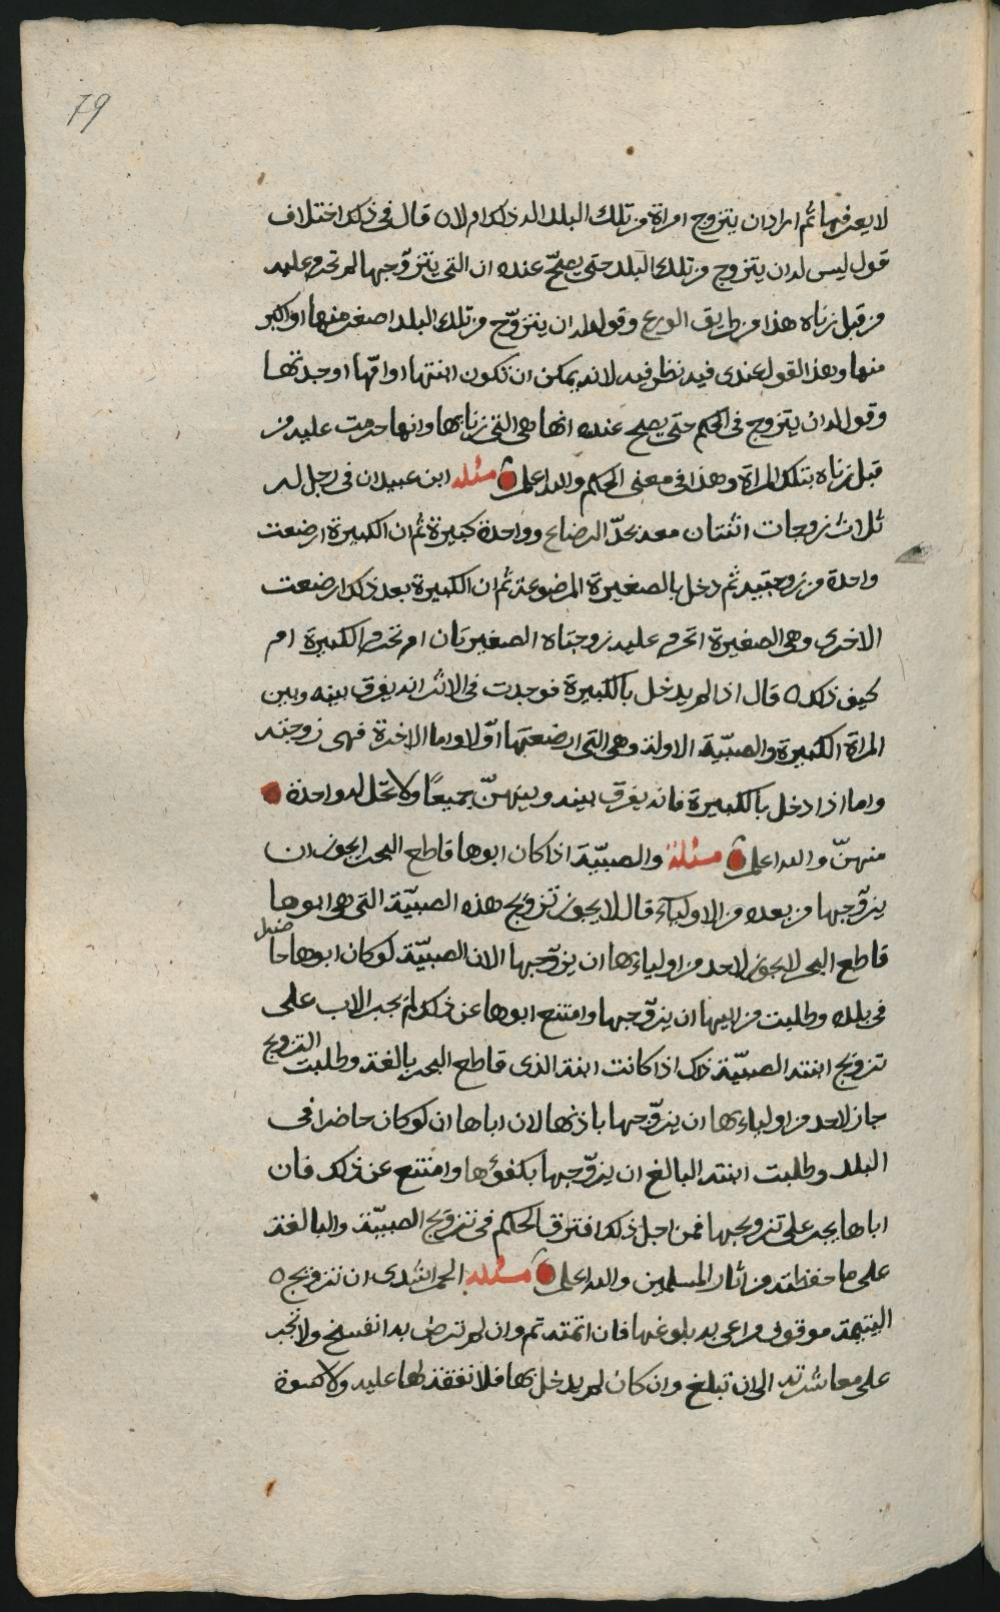 79
لا يعرفها ثم اراد ان يتزوج امراة من تلك البلد اله ذلك ام لا ن قال في ذلك اختلاف
قول ليس له ان يتزوج من تلك البلد حتى يصحّ عنده ان التي يتزوّجها لم تحرم عليه
من قبل زناه هذا من طريق الورع وقول له ان يتزوّج من تلك البلد اصغر منها او اكبر
منها وهذا القول عندي فيه نظر فيه لانه يمكن ان تكون ابنتها او امّها او جدتها
وقول له ان يتزوج في الحكم حتى يصح عنده انها هي التي زنا بها وانها حرمت عليه من
قبل زناه بتلك المراة وهذا في معنى الحكم والله اعلم مسئله ابن عبيدان في رجل له
ثلاث زوجات اثنتان معه بحدّ الرضاع وواحدة كبيرة ثم ان الكبيرة ارضعت
واحدة من زوجتيه ثم دخل بالصغيرة المرضوعة ثم ان الكبيرة بعد ذلك ارضعت
الاخرى وهي الصغيرة اتحرم عليه زوجتاه الصغيرتان ام تحرم الكبيرة ام
كيف ذلك ه قال اذا لم يدخل بالكبيرة فوجدت في الاثر انه يفرق بينه وبين
المراة الكبيرة والصبيّة الاولة وهي التي ارضعتها اوّلا واما الاخرة فهي زوجته
واما اذا دخل بالكبيرة فانه يفرق بينه وبينهنّ جميعًا ولا تحلّ له واحدة
منهنّ والله اعلم مسئلة والصبيّة اذا كان ابوها قاطع البحر ايجوز ان
يزوّجها من بعده من الاولياء قال لا يجوز تزويج هذه الصبيّة التي هي ابوها
قاطع البحر لا يجوز لاحد من اولياءها ان يزوّجها الان الصبيّة لو كان ابوها حاضرا
في بلده وطلبت من ابيها ان يزوّجها وامتنع ابوها عن ذلك لم يجبر الاب على
تزويج ابنته الصبيّة ذلك اذا كانت ابنة الذي قاطع البحر بالغة وطلبت التزويج
جاز لاحد من اولياءها ان يزوّجها باذنها لان اباها ان لو كان حاضرا في
البلد وطلبت ابنته البالغ ان يزوّجها بكفؤها وامتنع عن ذلك فان
اباها يجبر على تزويجها فمن اجل ذلك افترق الحكم في تزويج الصبيّة والبالغة
على ما حفظته من اثار المسلمين والله اعلم مسئله ان تزويج ه
اليتيمة موقوف مراعى به بلوغها فان اتمته تم وان لم ترض به انفسخ ولا تجبر
على معاشرته الى ان تبلغ وان كان لم يدخل بها فلا نفقة لها عليه ولا كسوة